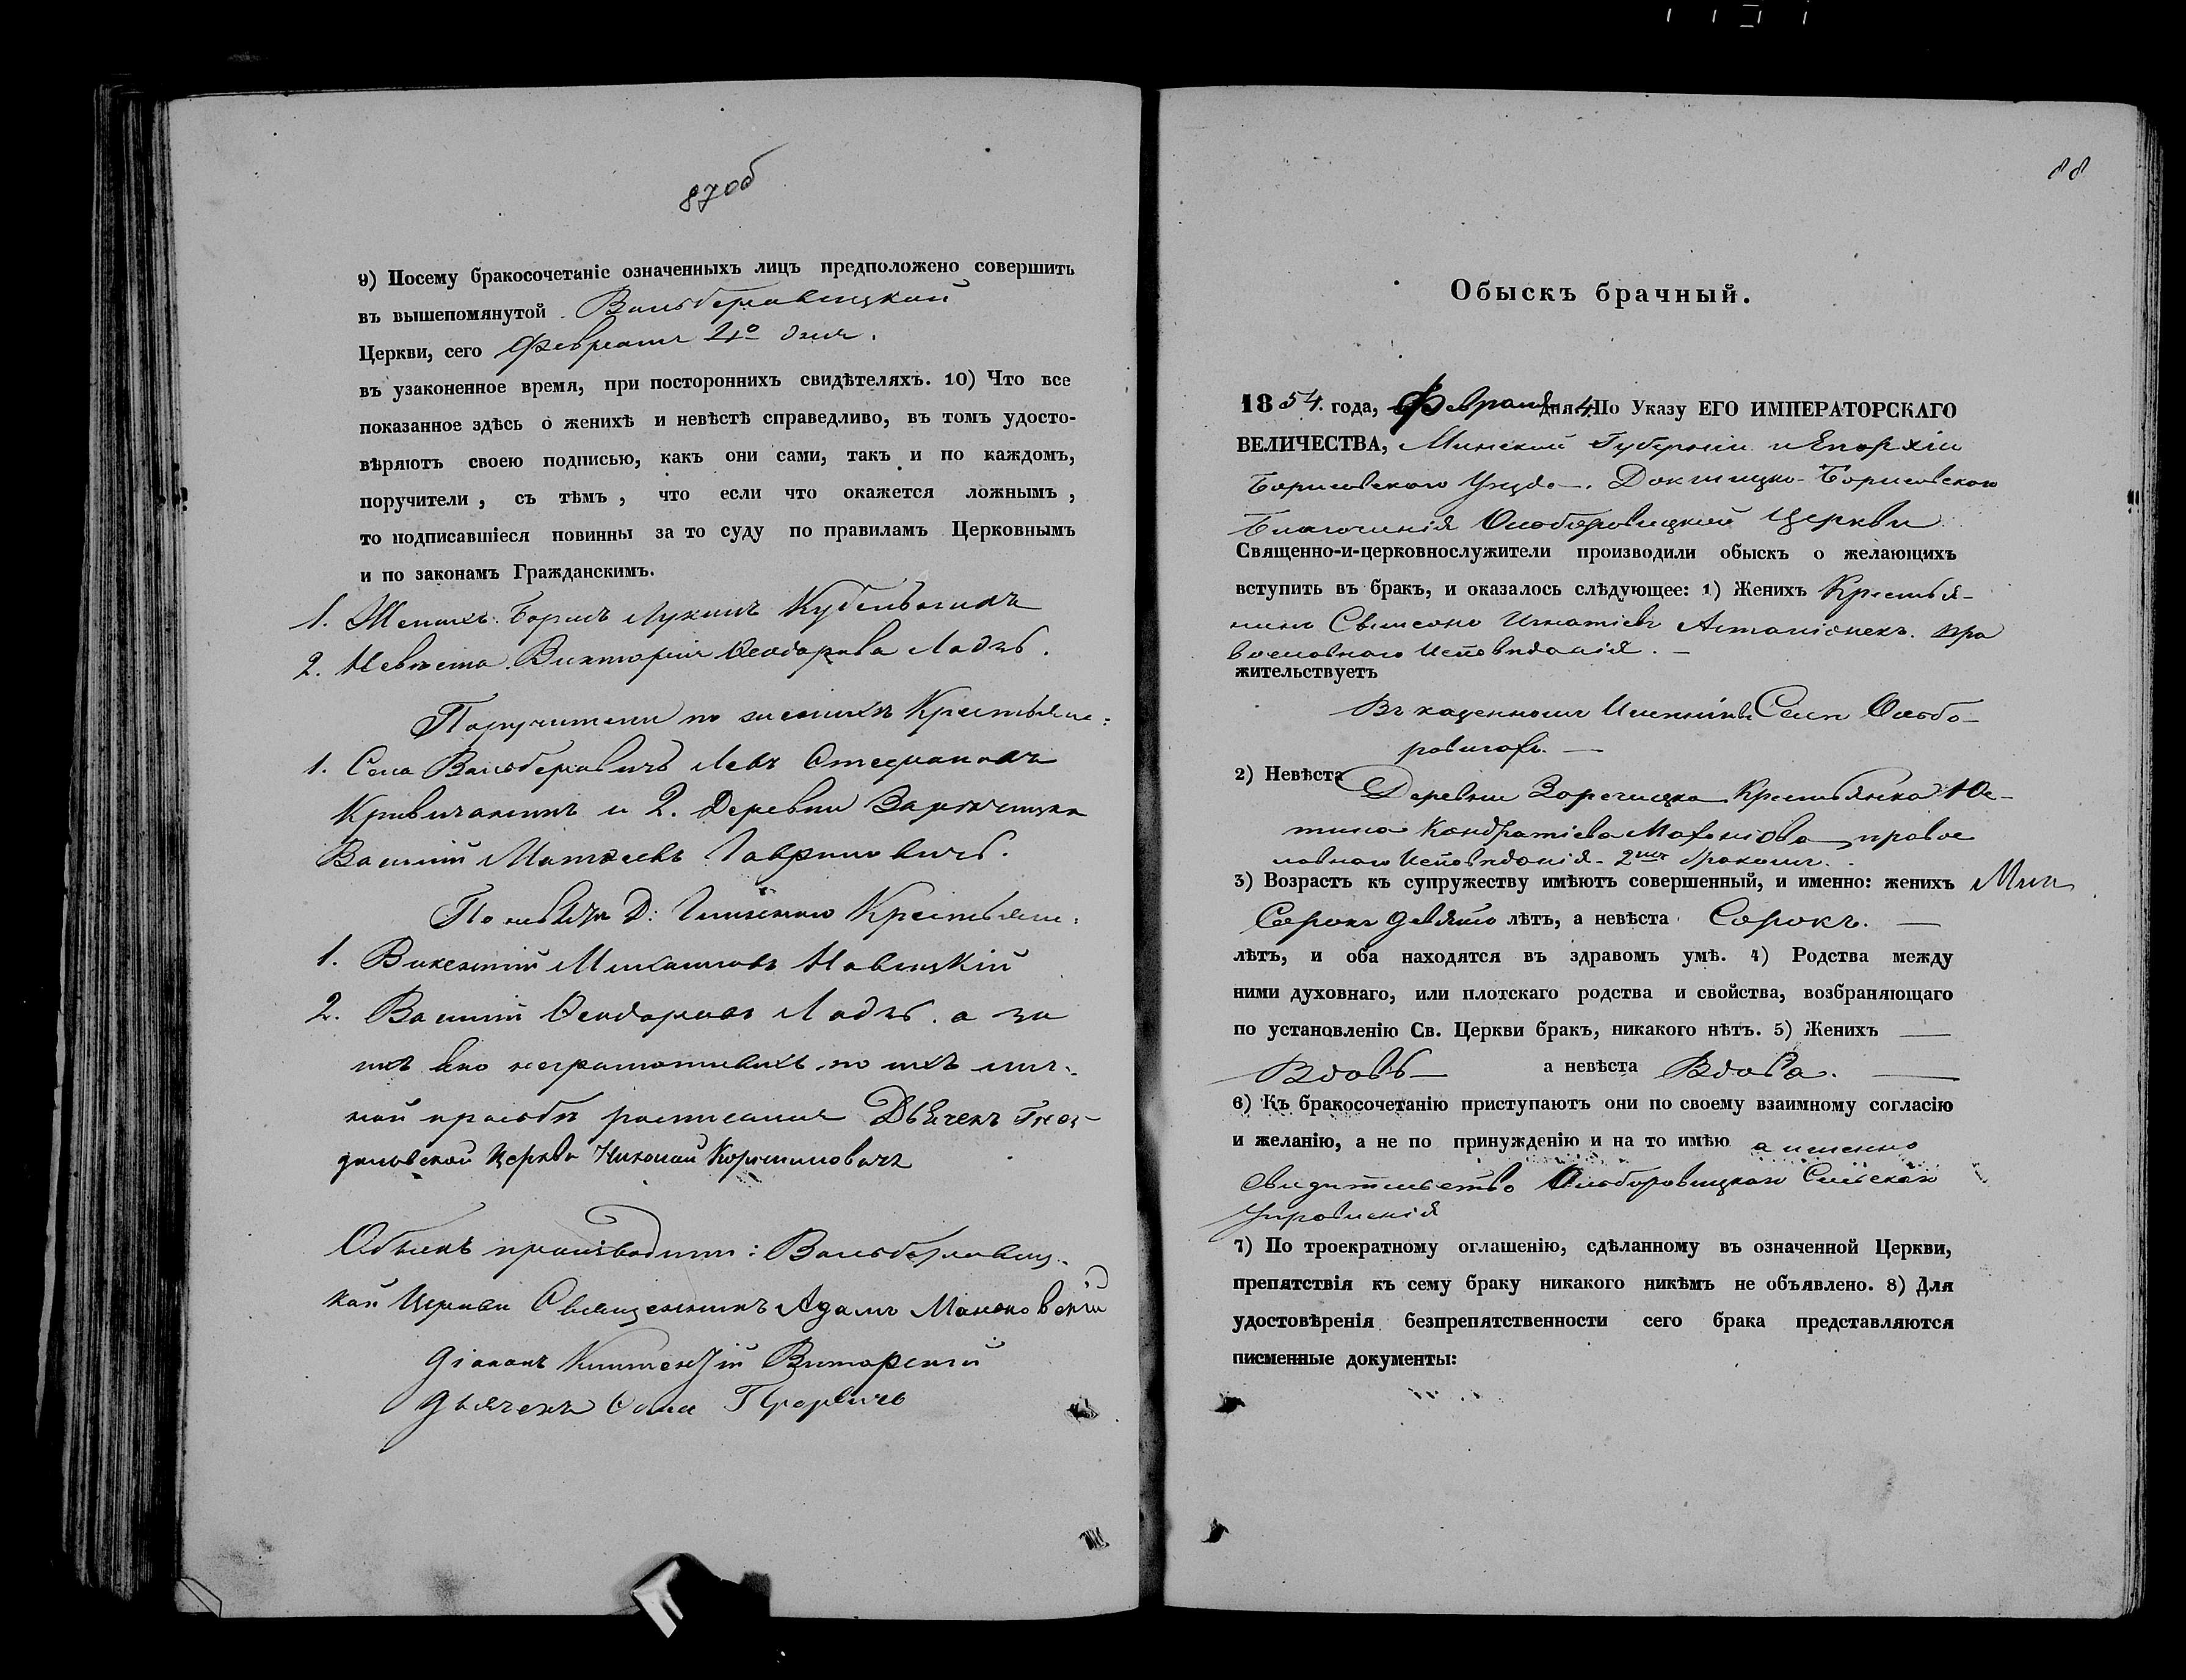 87об
9) Посему бракосочетаніе означенныхъ лицъ предположено совершить
въ вышепомянутой Вольберовицкой
Церкви, сего Февраля 4о дня.
въ узаконенное время, при постороннихъ свидѣтеляхъ. 10) Что все
показанное здѣсь о женихѣ и невѣстѣ справедливо, въ томъ удосто-
вѣряютъ своею подписью, какъ они сами, такъ и по каждомъ,
поручители, съ тѣмъ, что если что окажется ложнымъ,
то подписавшіеся повинны за то суду по правиламъ Церковнымъ
и по законамъ Гражданскимъ.
1. Женихъ Борисъ Лукинъ
2. Невѣста Викторія Ѳеодорова Ладзь.
Поручители по женихѣ Крестьяне:
1. Села Левъ Стефановъ
Кривичанинъ и 2. Деревни
Василій Матѳеевъ Гавриловичъ.
По невѣстѣ Д: Крестьяне:
1. Викентій Михаиловъ Новицкій
2. Василій Ѳеодоровъ Ладзь. а за
ихъ неграмотныхъ по ихъ лич-
ной просьбѣ росписался Дьячекъ
Церкви Николай
Обыскъ производили:
кой Церкви Священникъ Адамъ
Діаконъ
Дьячекъ
88
Обыскъ брачный.
1854. года, Февраля дня 4. По Указу ЕГО ИМПЕРАТОРСКАГО
ВЕЛИЧЕСТВА, Минской Губерніи и Епархіи
Борисовского Уезда. Докшицко-Борисовского
Благочинія Церкви
Священно-и-церковнослужители производили обыскъ о желающихъ
вступить въ бракъ, и оказалось слѣдующее: 1) Женихъ Крестья-
нинъ Игнатіевъ пра
вославнаго Исповѣданія. —
жительствуетъ
Въ казенномъ Имѣніи Селѣ
—
2) Невѣста Деревни Крестьянка Юс-
тина Кондратіева правос
лавнаго Исповѣданія - 2мъ бракомъ.
3) Возрастъ къ супружеству имѣютъ совершенный, и именно: женихъ
Сорокъ девять лѣтъ, а невѣста Сорокъ. —
лѣтъ, и оба находятся въ здравомъ умѣ. 4) Родства между
ними духовнаго, или плотскаго родства и свойства, возбраняющаго
по установленію Св. Церкви бракъ, никакого нѣтъ. 5) Женихъ —
Вдовъ — а невѣста Вдова. —
6) Къ бракосочетанію приступаютъ они по своему взаимному согласію
и желанію, а не по принужденію и на то имѣю а именно
Сельскаго
Управленія
7) По троекратному оглашенію, сдѣланному въ означенной Церкви,
препятствія къ сему браку никакого никѣмъ не объявлено. 8) Для
удостовѣренія безпрепятственности сего брака представляются
писменные документы: